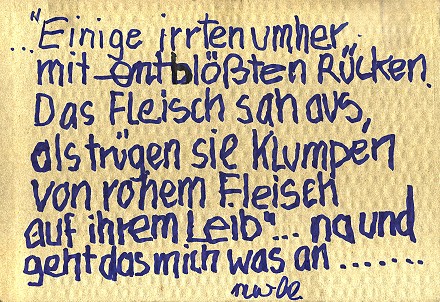 ..."Einige irrten umher
mit entblößten Rücken.
Das Fleisch sah aus,
als trügen sie Klumpen
von rohem Fleisch
auf ihrem Leib"... na und
geht das mich was an .......